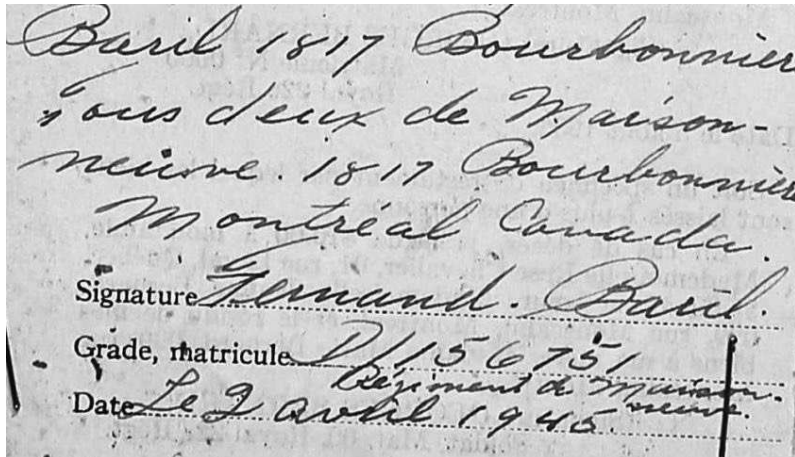 Baril 1817 Bourbonnier
Tous deux de Maison-
neuve. 1817 Bourbonnier
Montréal Canada.
Signature Fernand. Baril.
Grade, matricule D/156751
Régiment de Maison-
neuve.
Date Le 2 avril 1945.